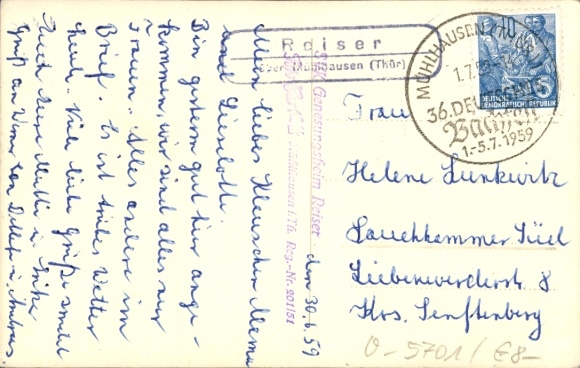 Reiser
über Mühlhausen (Thür)
MÜHLHAUSEN (THÜR)
1.7.59
36. DEUTSCHES
Bachfest
1.-5.7.1959
10
DEUTSCHE
DEMOKRATISCHE REPUBLIK
Genesungsheim Reiser
Mühlhausen i. Th. Reg.-Nr. 201/51
den 30.6.59
Mein liebes Kläuschen, Mama
und Lieselott.
Bin gestern gut hier ange-
kommen, wir sind alles nur
Frauen. Alles andere im
Brief. Es ist trübes Wetter
heute. Viele liebe Grüße sendet
Euch Eure Mutti u.
Gruß an von Detlef u. Andreas
Frau
Helene Lunkwitz
Lauchhammer Süd
Liebenwerderstr. 8
Krs. Senftenberg
O-5701/ €8-